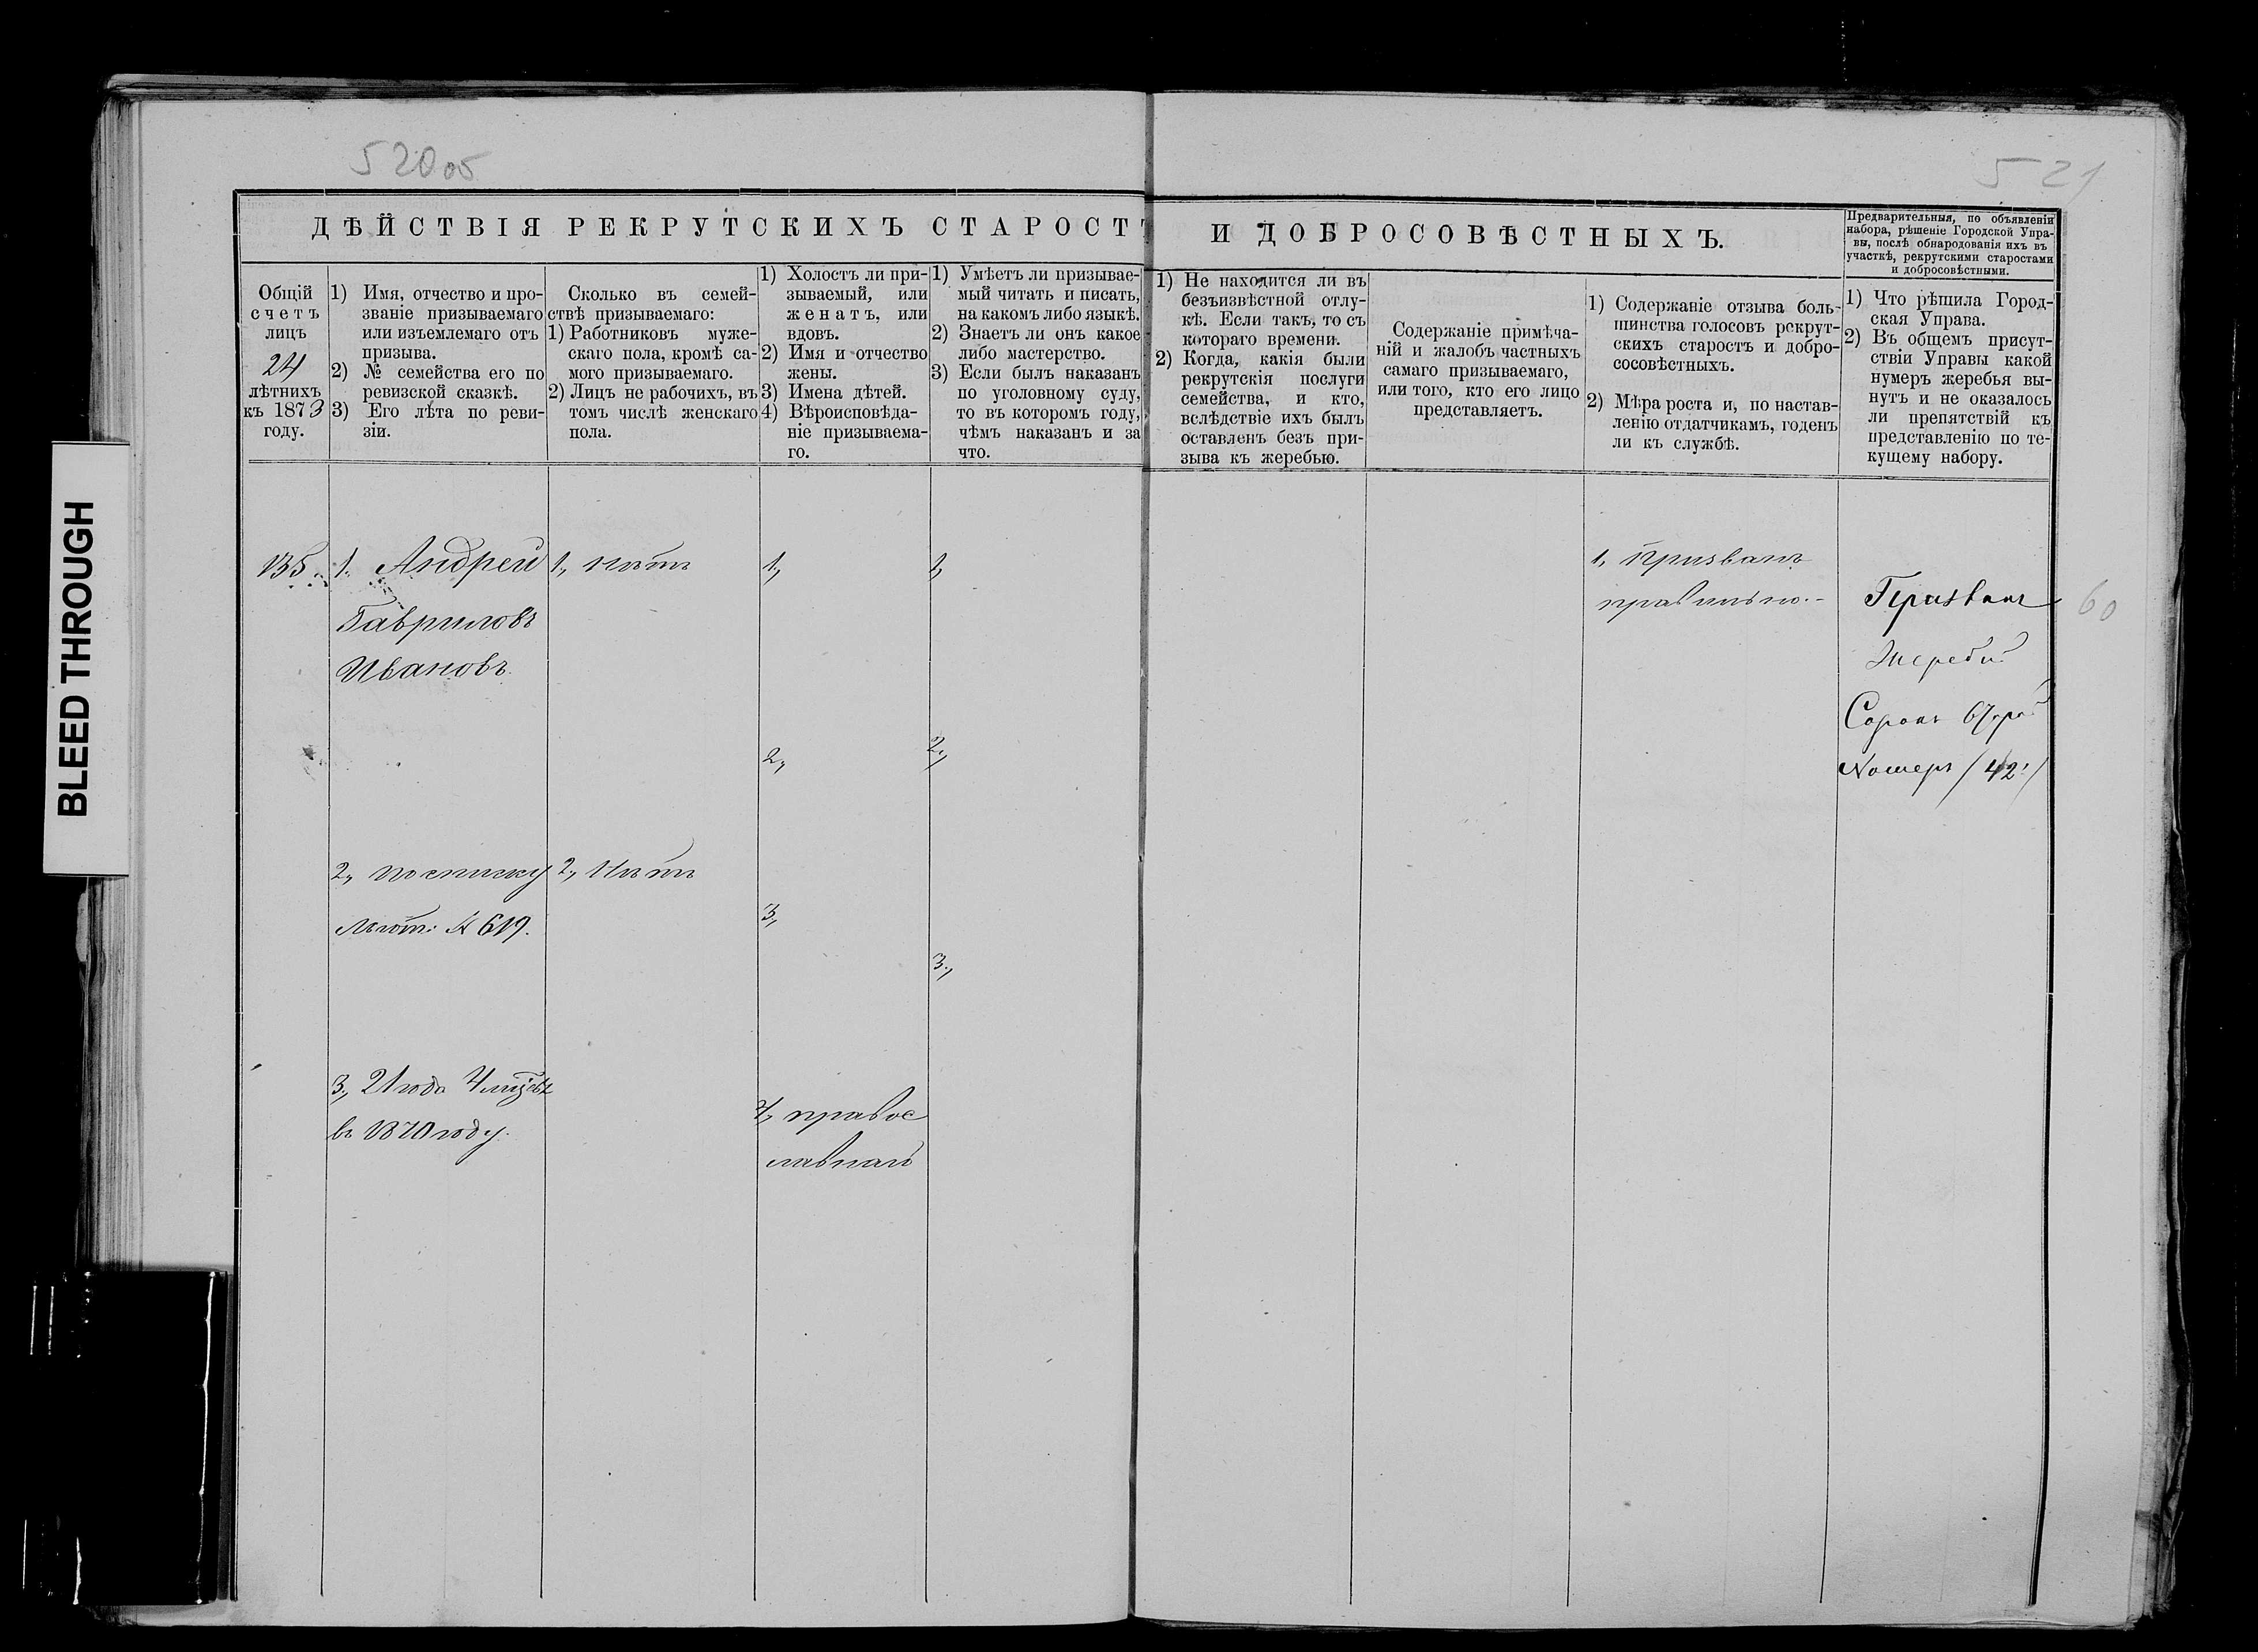 520об
521
ДѢЙСТВІЯ РЕКРУТСКИХЪ СТАРОСТЪ И ДОБРОСОВѢСТНЫХЪ.
Предварительныя, по объявленіи
набора, рѣшеніе Городской Упра-
вы, послѣ обнародованія ихъ въ
участкѣ, рекрутскими старостами
и добросовѣстными.
Общій
счетъ
лицъ
24
лѣтнихъ
къ 1873
году.
1) Имя, отчество и про-
званіе призываемаго
или изъемлемаго отъ
призыва.
2) № семейства его по
ревизской сказкѣ.
3) Его лѣта по реви-
зіи.
Сколько въ семей-
ствѣ призываемаго:
1) Работниковъ муже-
скаго пола, кромѣ са-
мого призываемаго.
2) Лицъ не рабочихъ, въ
томъ числѣ женскаго
пола.
1) Холостъ ли при-
зываемый, или
женатъ, или
вдовъ.
2) Имя и отчество
жены.
3) Имена дѣтей.
4) Вѣроисповѣда-
ніе призываема-
го.
1) Умѣетъ ли призывае-
мый читать и писать,
на какомъ либо языкѣ.
2) Знаетъ ли онъ какое
либо мастерство.
3) Если былъ наказанъ
по уголовному суду,
то въ которомъ году,
чѣмъ наказанъ и за
что.
1) Не находится ли въ
безъизвѣстной отлу-
кѣ. Если такъ, то съ
котораго времени.
2) Когда, какія были
рекрутскія послуги
семейства, и кто,
вслѣдствіе ихъ былъ
оставленъ безъ при-
зыва къ жеребью.
Содержаніе примѣча-
ній и жалобъ частныхъ
самаго призываемаго,
или того, кто его лицо
представляетъ.
1) Содержаніе отзыва боль-
шинства голосовъ рекрут-
скихъ старостъ и добро-
сосовѣстныхъ.
2) Мѣра роста и, по настав-
ленію отдатчикамъ, годенъ
ли къ службѣ.
1) Что рѣшила Город-
ская Управа.
2) Въ общемъ присут-
ствіи Управы какой
нумеръ жеребья вы-
нутъ и не оказалось
ли препятствій къ
представленію по те-
кущему набору.
135.
1. Андрей
Гавриловъ
Ивановъ.
2, по списку
№ 619.
3, 21 года 4 мѣсяц.
въ 1870 году.
1, нѣтъ
2, Нѣтъ
1,
2,
3,
4, правос
лавнай
1,
2,
3,
1, Призванъ
правильно.-
Призванъ
Жребій
Сорокъ Второй
Номеръ /42:/
60
BLEED THROUGH